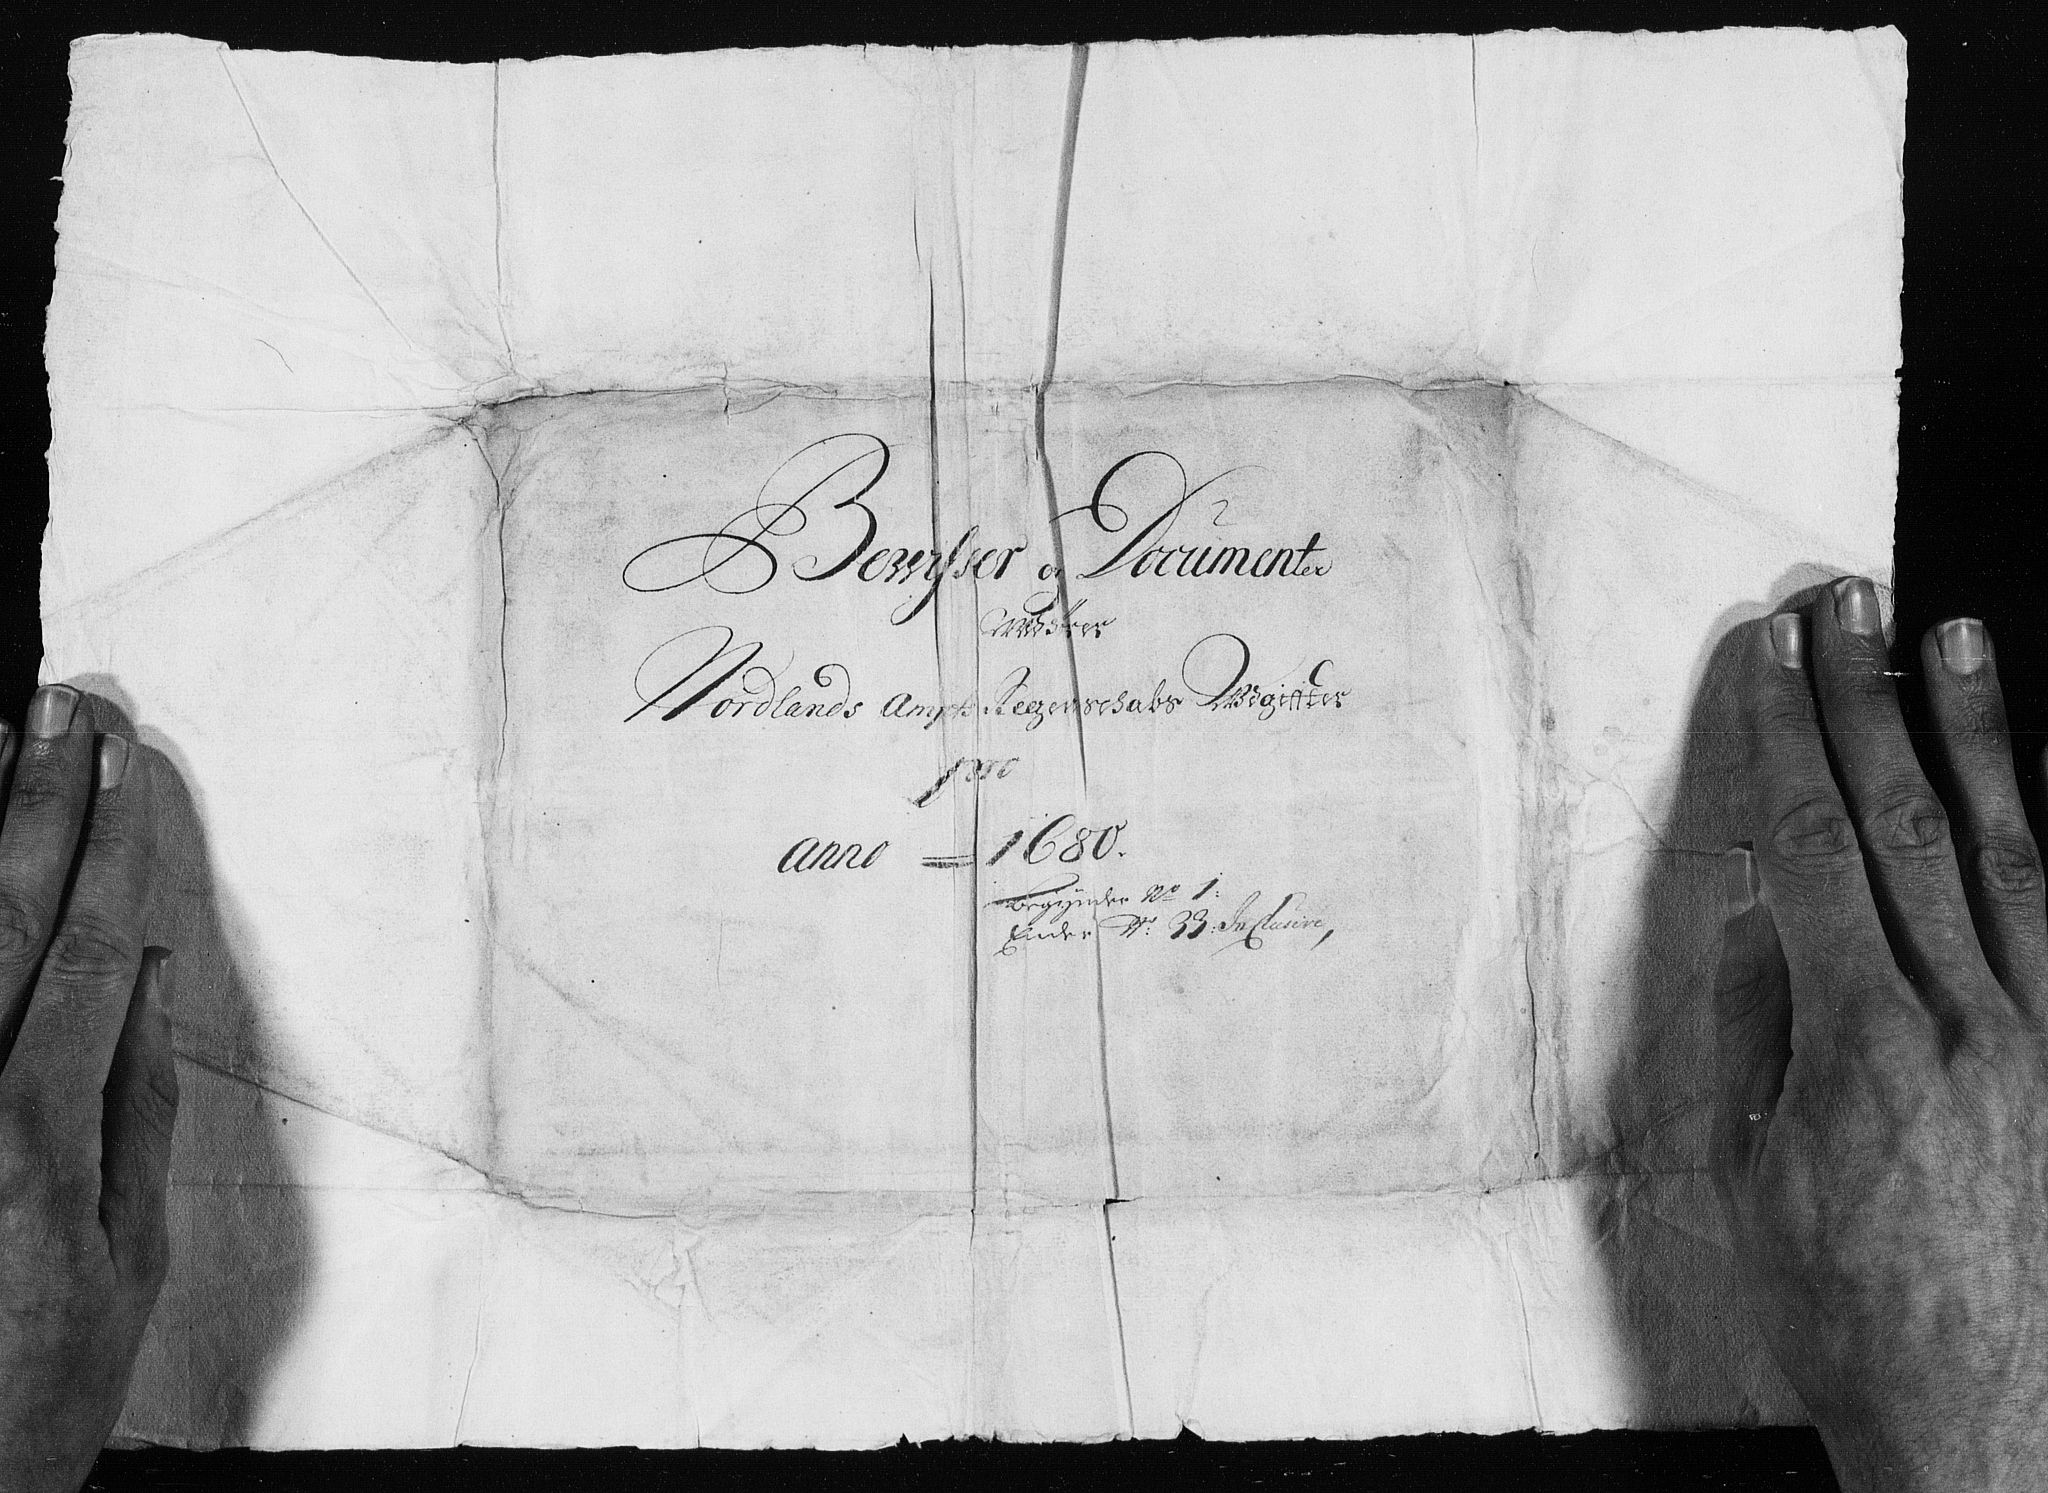 Bewysser og Documenter
Nordlands Ampts Regenschabs Udgiffter
pro
Anno = 1680.
begynder No 1:
Ender No: 33: Inclusive,